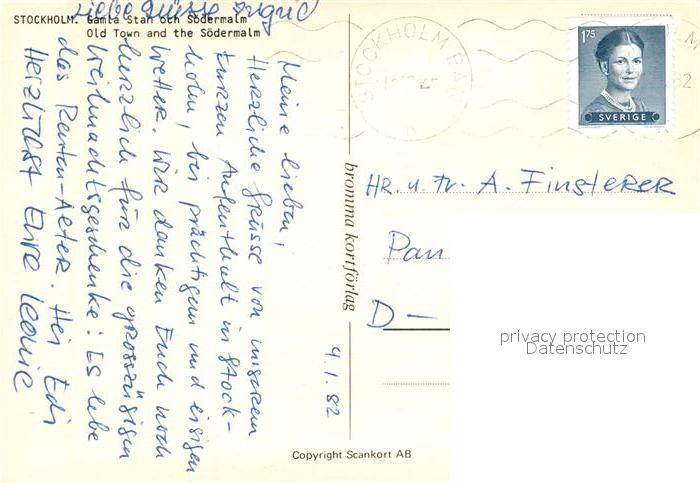 Liebe Grüsse Ingrid
STOCKHOLM. Gamla Stan och Södermalm
Old Town and the Södermalm
Meine lieben,
Herzliche Grüsse von unserem
kurzen Aufenthalt in Stock-
holm, bei prächtigem und eisigem
Wetter. Wir danken Euch noch
herzlich für die grosszügigen
Weihnachtsgeschenke! Es lebe
das Renten-Alter. Hei Edi
Herzlichst Eure Leonie
4.1.82
bromma kortförlag
Copyright Scankort AB
STOCKHOLM BAN
82
1.75
SVERIGE
Hr. u. Fr. A. Finsterer
Pan
D —
privacy protection
Datenschutz